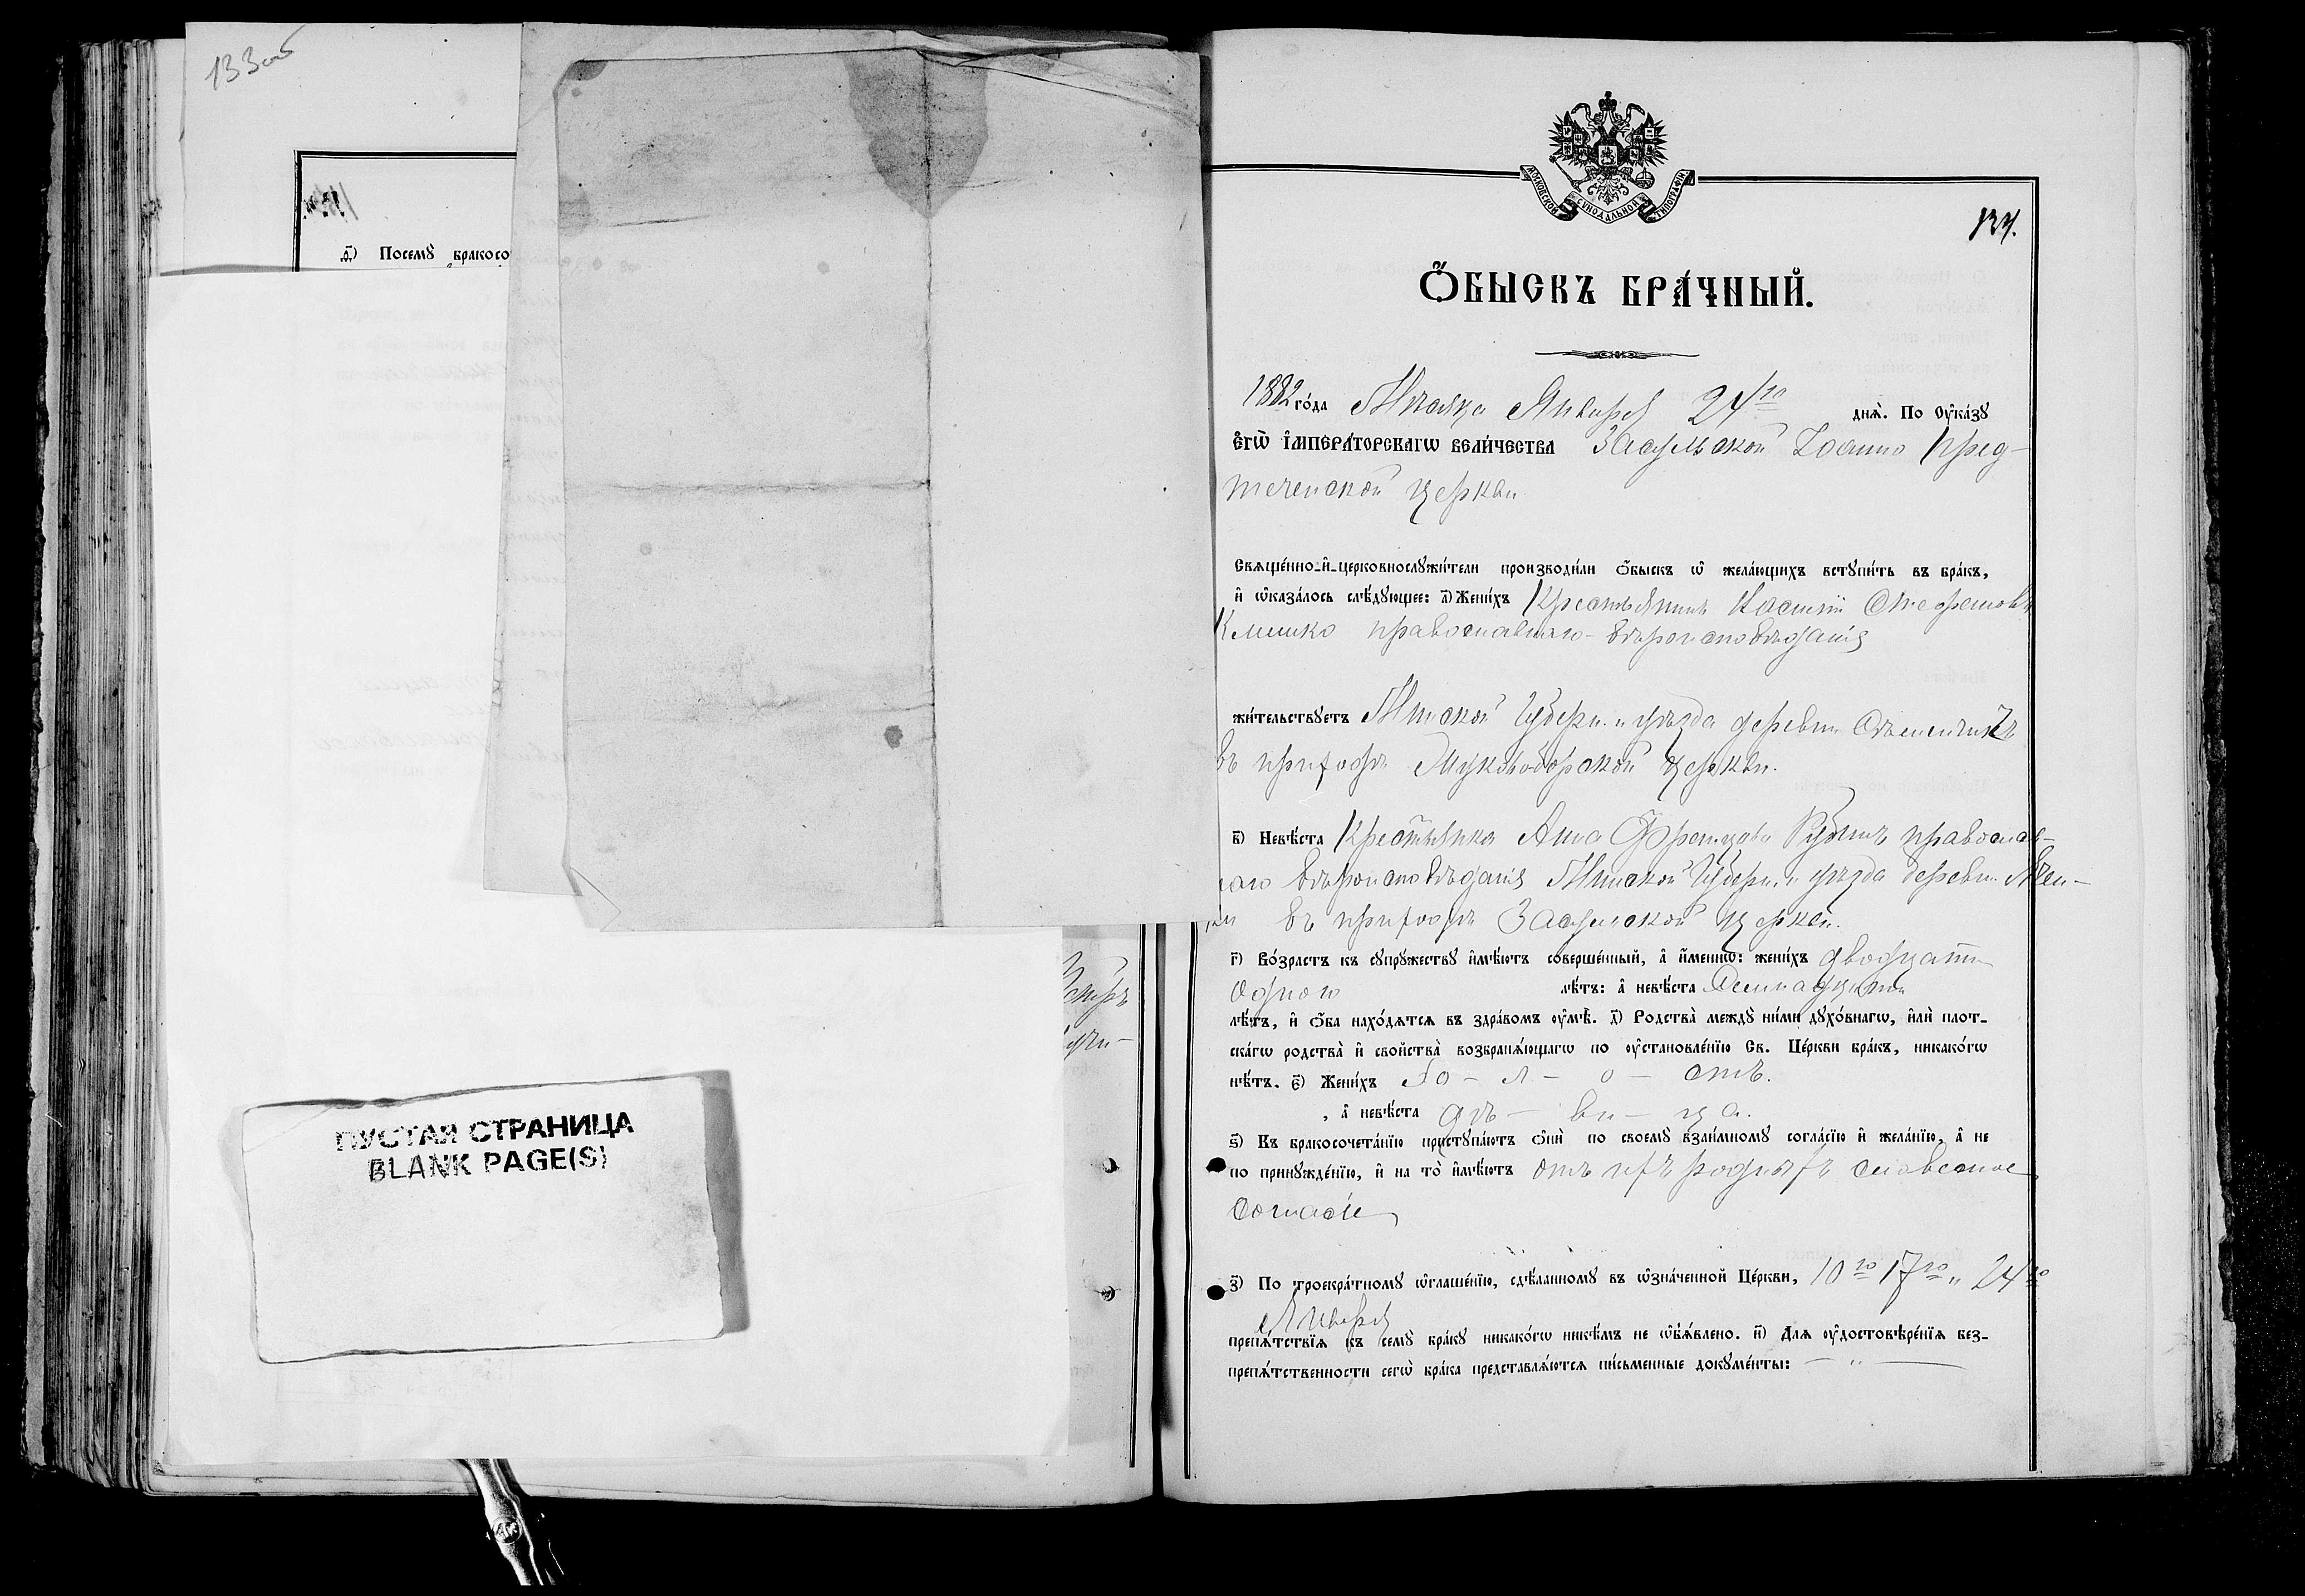 133об
д҃) Посемꙋ бракосо
ПУСТАЯ СТРАНИЦА
BLANK PAGE(S)
МОСКОВСКОЙ СѴНОДАЛЬНОЙ ТИПОГРАФІИ
134.
Ѻ҆БЫСКЪ БРА́ЧНЫЙ.
1882 го́да Мѣсяца Января 24го дня̀. По Оу҆ка́зꙋ
Є҆ГѠ̀ І҆МПЕРА́ТОРСКАГѠ ВЕЛИ́ЧЕСТВА Засульской Іоанно Пред-
теченской церкви
Свяще́нно-и҆-церковнослꙋжи́тели производи́ли ѻ҆́быскъ ѡ҆ жела́ющихъ встꙋпи́ть въ бра́къ,
и҆ ѡ҆каза́лось слѣ́дꙋющее: а҃) Жени́хъ Крестьянинъ Стефановъ
православнаго вѣроисповѣданія
жи́тельствꙋетъ Минской Губерн. и уѣзда деревни
въ приходѣ церкви.
в҃) Невѣ́ста Крестьянка Анна православ-
наго вѣроисповѣданія Минской Губерн. и уѣзда деревни
въ приходѣ Засульской церкви.
г҃) Во́зрастъ къ сꙋпрꙋжествꙋ и҆мѣ́ютъ соверше́нный, а҆ и҆́менно: жени́хъ двадцати
одного лѣ́тъ: а҆ невѣ́ста
лѣ́тъ, и҆ ѻ҆́ба нахо́дятся въ здра́вомъ оу҆мѣ̀. д҃) Родства̀ междꙋ ни́ми дꙋхо́внагѡ, и҆лѝ плот-
ска́гѡ родства̀ и҆ свойства̀ возбраня́ющагѡ по оу҆становле́нїю Св. Це́ркви бра́къ, никако́гѡ
нѣ́тъ. є҃) Жени́хъ хо - л - о - стъ.
, а҆ невѣ́ста дѣ - ви - ца.
ѕ҃) Къ бракосочета́нїю пристꙋпа́ютъ ѻ҆нѝ по своемꙋ̀ взаи́мномꙋ согла́сїю и҆ жела́нїю, а҆ не
по принꙋжде́нїю, и҆ на то̀ и҆мѣ́ютъ отъ ихъ родныхъ словесное
согласіе
з҃) По троекра́тномꙋ ѡ҆глаше́нїю, сдѣ́ланномꙋ въ ѡ҆зна́ченной Це́ркви, 10го 17го и 24го
Января
препя́тствїя къ семꙋ̀ бра́кꙋ никако́гѡ никѣ́мъ не ѡ҆б̾я́влено. и҃) Для оу҆достовѣре́нїя без-
препя́тственности сегѡ̀ бра́ка представля́ются пи́сьменные докꙋме́нты: — „ —